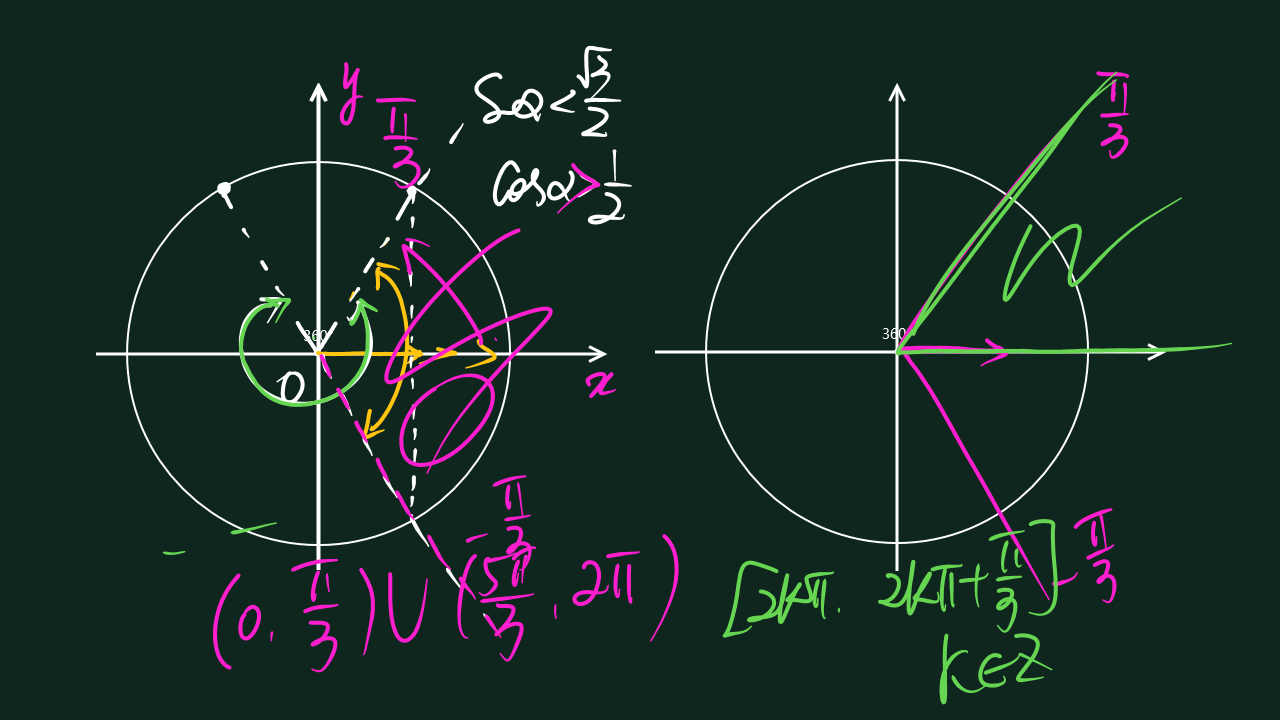 y
π/3
Sα < √3/2
cosα > 1/2
360
O
x
-π/3
(0, π/3) ∪ (5π/3, 2π)
π/3
360
-π/3
[2kπ, 2kπ+π/3]
k∈Z